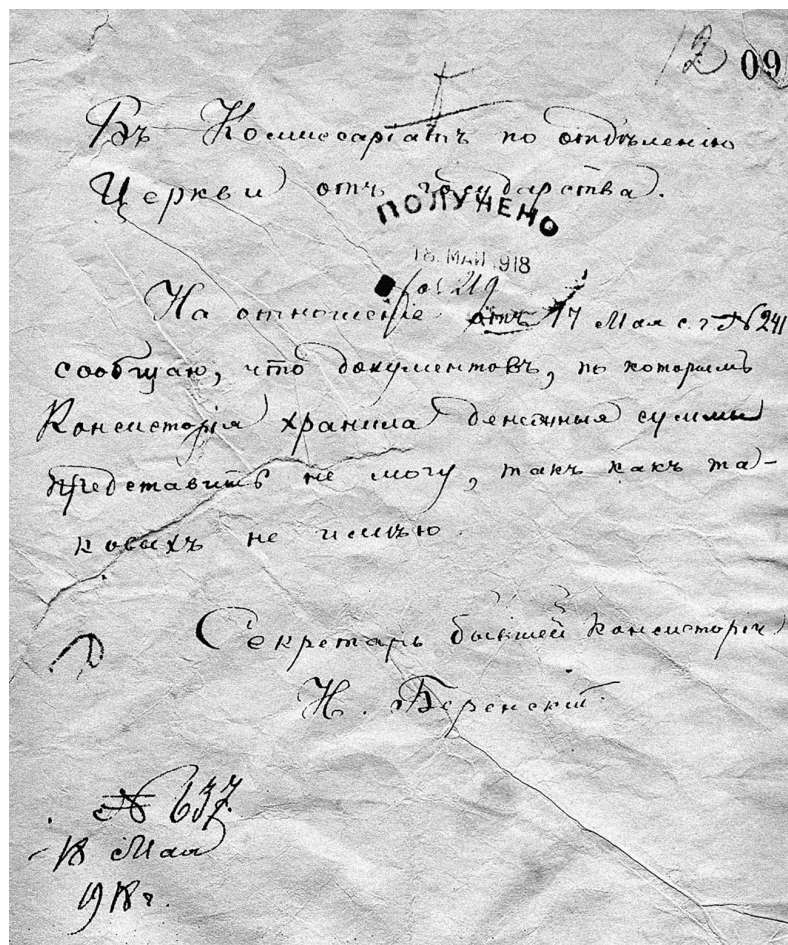 12 09
Въ Комиссаріатъ по отдѣленію
Церкви отъ государства.
ПОЛУЧЕНО
18. МАЙ 1918
219
На отношеніе отъ 17 Мая с. г. № 241
сообщаю, что документовъ, по которымъ
Консисторія хранила денежныя суммы
представить не могу, такъ какъ та-
ковыхъ не имѣю.
Секретарь бывшей Консисторіи
Н. Беренскій
№ 637.
18 Мая
1918 г.